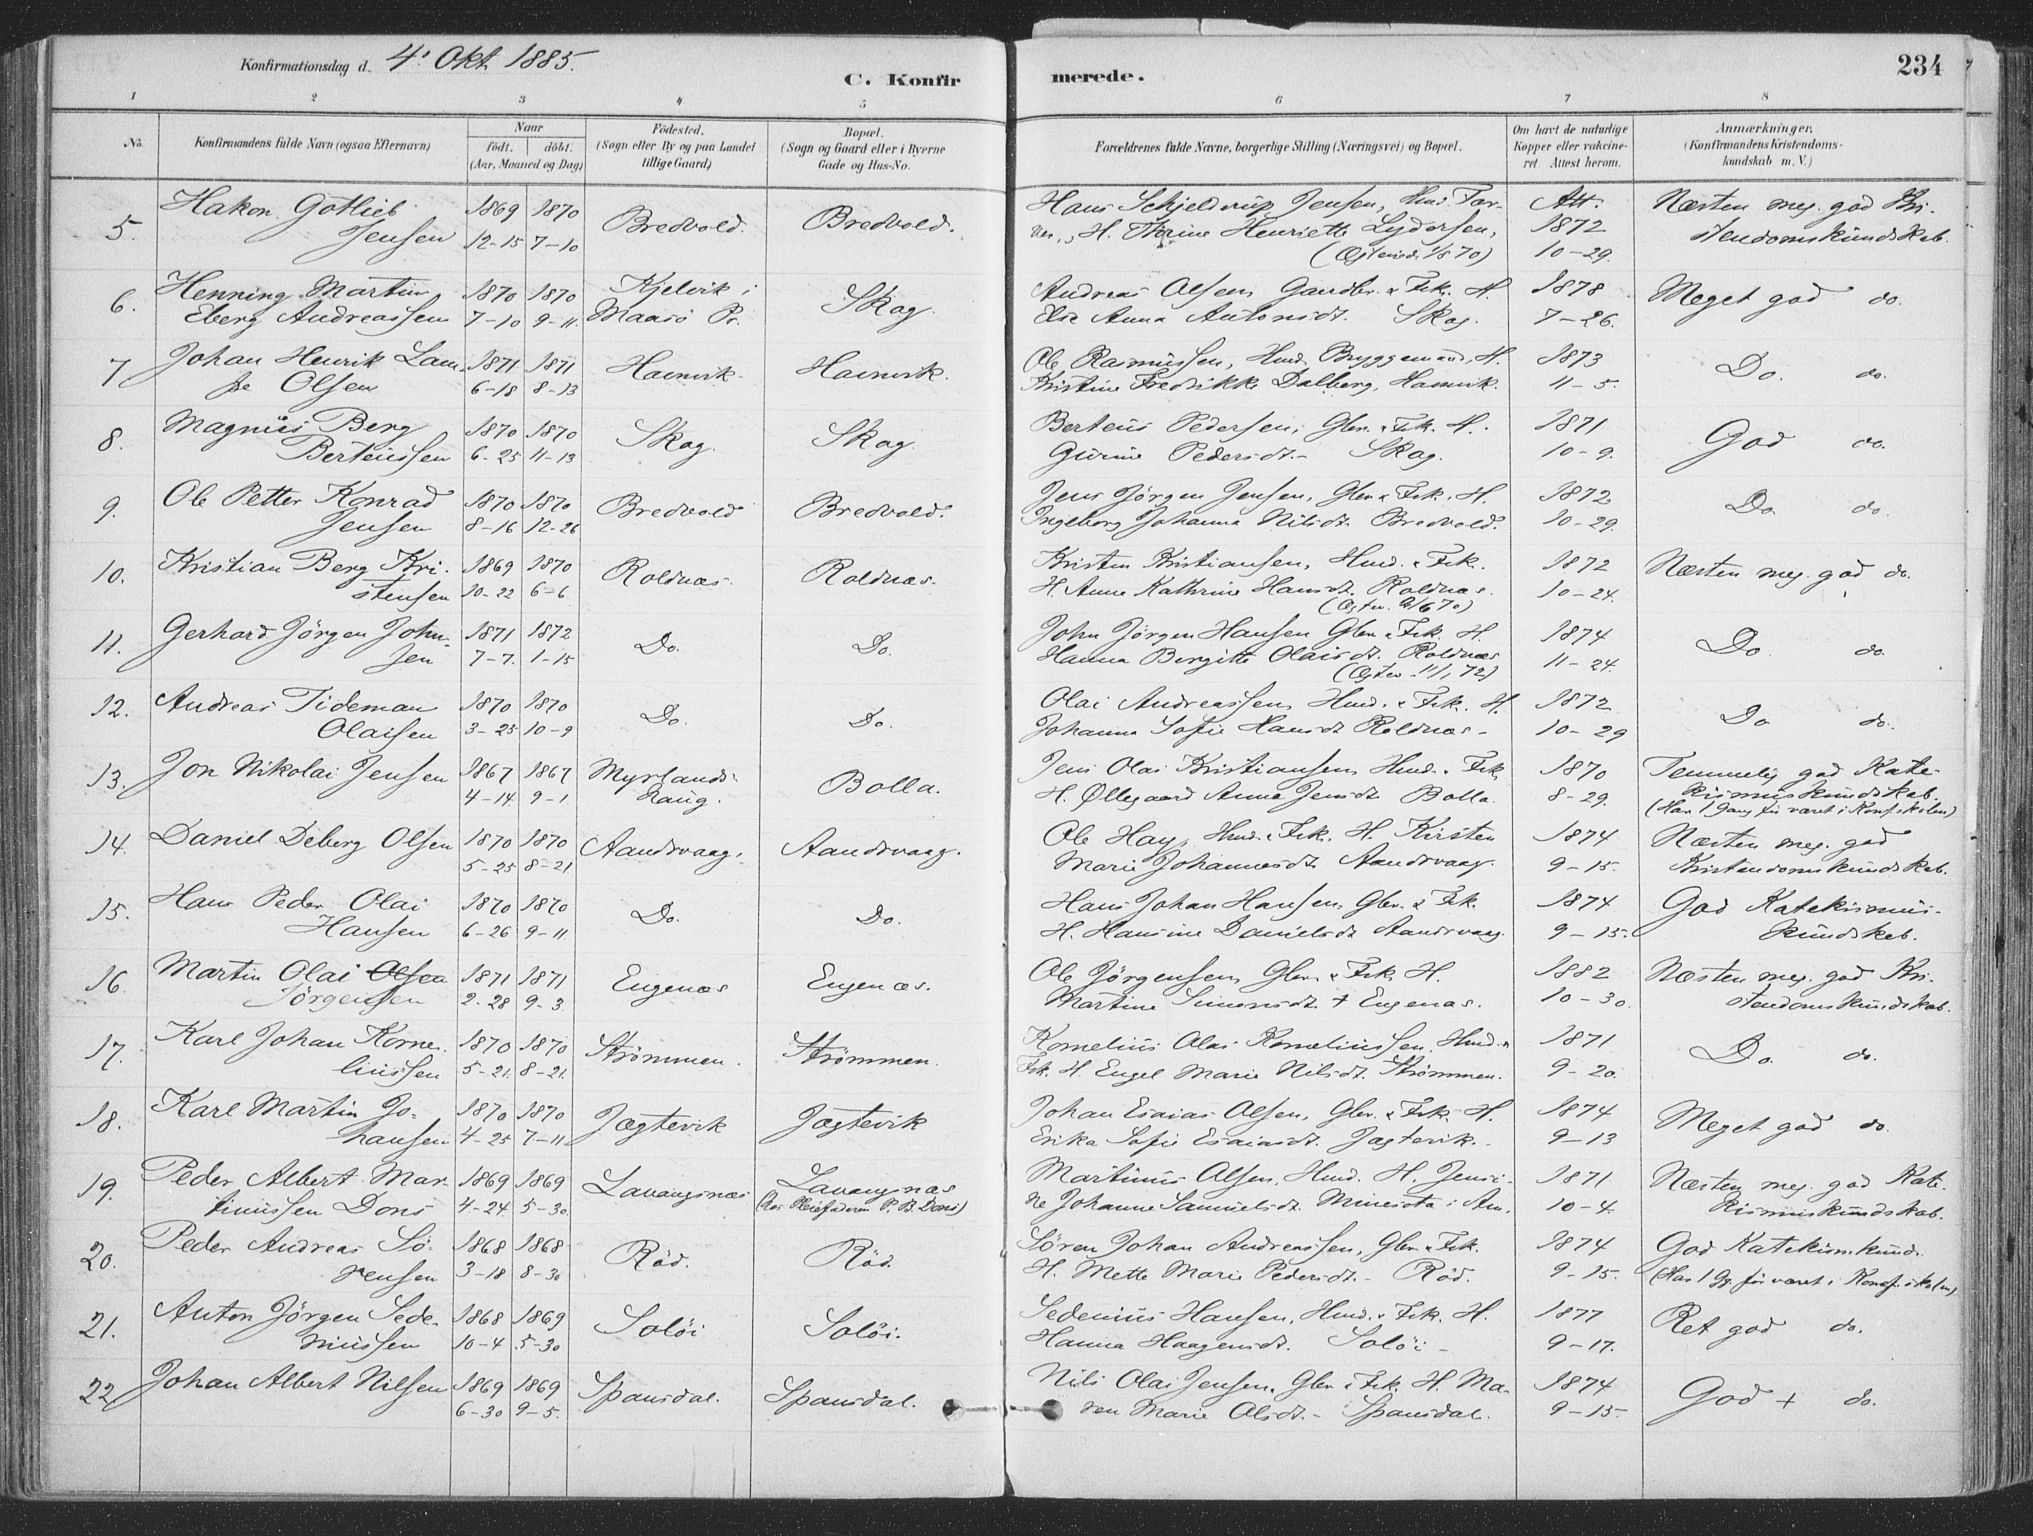 Konfirmationsdag d. 4. Okt 1885.
C. Konfir merede. 234
1 2 3 4 5 6 7 8
No. Konfirmandens fulde Navn (ogsaa Efternavn) Naar födt. döbt. (Aar, Maaned og Dag) Födested. (Sogn eller By og paa Landet tillige Gaard) Bopæl. (Sogn og Gaard eller i Byerne Gade og Hus-No. Forældrenes fulde Navne, borgerlige Stilling (Næringsvei) og Bopæl. Om havt de naturlige Kopper eller vakcineret Attest herom. Anmærkninger. (Konfirmandens Kristendomskundskab m. V.)
Hakon Gotlieb 1869 1870 Hans Schjelderup Jensen, Hmd. For- Att. Næsten meg. god Kri-
5. Jensen 12-15 7-10 Bredvold. Bredvold. H. Thrine Henriette Lydersen, 1872 stendomskundskab.
10-29.
Henning Martin 1870 1870 Kjelvik i Andreas Olsen Gaardbr. & Fsk. H. 1878
6. Eberg Andreassen 7-10 9-11. Maasö Pr. Skog Else Anna Antonsdt. Skog. 7-26. Meget god do.
Johan Henrik Lam- 1871 1871 Ole Rasmussen, Hmd. Bryggemand, H. 1873
7 pe Olsen 6-18 8-13 Havnvik Havnvik. Kristine Fredrikke Dalberg, Havnvik. 11-5. Do. do.
Magnus Berg 1870 1870 Berteus Pedersen, Gbr. & Fsk. H. 1871
8. Berteussen 6-25 11-13 Skog. Skog. Gurine Pedersdt. Skog. 10-9. God do.
Ole Petter Konrad 1870 1870 Jens Jörgen Jensen, Gbr. & Fsk. H. 1872
9. Jensen 8-16 12-26 Bredvold Bredvold. Ingeborg Johanna Nilsdt. Bredvold. 10-29. Do do.
Kristian Berg Kri- 1869 1870 Kristen Kristiansen, Hmd. & Fsk. 1872
10. stensen 10-22 6-6 Roldnæs Roldnæs. H. Anne Kathrine Hansdt. Roldnæs. 10-24. Næsten meg. god do.
Gerhard Jörgen John- 1871 1872 John Jörgen Hansen Gbr. & Fsk. H. 1874
11. sen 7-7. 1-15 Do. Do. Hanna Bergitte Olaisdt. Roldnæs 11-24. Do do.
Andreas Tideman 1870 1870 Olai Andreassen Hmd. & Fsk. H. 1872
12. Olaisen 3-25 10-9 Do. Do. Johanna Sofie Hansdt Roldnæs- 10-29 Do do.
13. Jon Nikolai Jensen 1867 1867 Myrlands- Bolla. Jens Olai Kristiansen Hmd. & Fsk 1870 Temmelig god Kate-
4-14. 9-1 haug. H. Øllegaard Anna Jensdt Bolla. 8-29. kismuskundskab.
(Har 1 Gang før været i Konf.skolen)
14. Daniel Deberg Olsen 1870 1870 Aandsvaag. Aandsvaag. Ole Hay, Hmd. & Fsk. H. Kirsten 1874 Næsten meg. god
5-25 8-21 Marie Johannesdt Aandsvaag. 9-15. Kristendomskundskab.
Hans Peder Olai 1870 1870 Hans Johan Hansen Gbr. & Fsk. 1874 God Katekismus-
15. Hansen 6-26 9-11 Do. Do. H. Hansine Danielsdt Aandsvaag. 9-15. kundskab.
Martin Olai Olsen 1871 1871 Ole Jörgensen Gbr. & Fsk H. 1882 Næsten meg. god Kri-
16. Jörgensen 2-28 9-3 Eugenæs Eugenæs. Martine Simonsdt + Eugenæs. 10-30. stendomskundskab.
Karl Johan Korne- 1870 1870 Kornelius Olai Korneliussen, Hmd. & 1871
17. liussen 5-21. 8-21. Strömmen. Strömmen. Fsk. H. Engel Marie Nilsdt. Strömmen. 9-20. Do. do.
Karl Martin Jo- 1870 1870 Johan Esaias Olsen, Gbr. & Fsk. H. 1874
18. hansen 4-25 7-11 Jægtevik Jægtevik Erika Sofie Esaiasdt. Jægtevik. 9-13 Meget god do.
Peder Albert Mar- 1869 1869 Martinus Olsen, Hmd. H. Jensi- 1871 Næsten meg. god Kate-
19. tinussen Dons 4-24. 5-30 Lavangsnæs Lavangsnæs (hos Pleiefaderen P. B. Dons) ne Johanne Samuelsdt. Minesota i Am. 10-4. kismuskundskab.
Peder Andreas Sö- 1868 1868 Sören Johan Andreassen, Gbr. & Fsk. 1874 God Katekism.kund.
20. rensen 3-18 8-30 Röd. Röd. H. Mette Marie Pedersdt. - Röd. 9-15. (Har 1 Gg. før været i Konf.skolen)
Anton Jörgen Sede- 1868 1869 Sedenius Hansen, Hmd. & Fsk. H. 1877
21. niussen 10-4 5-30 Solöi Solöi. Hanna Haagensdt. Solöi - 9-17. Ret god do.
22 Johan Albert Nilsen 1869 1869 Spansdal. Spansdal. Nils Olai Jensen. Gbr & Fsk. H. Ma- 1874
6-30 9-5. ren Marie Olsdt. - Spansdal. 9-15. God + do.